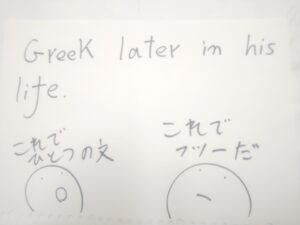 Greek later in his
life.
これで
ひとつの文
これで
フツーだ